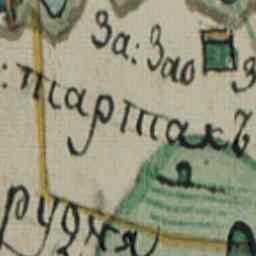 За: Зао
: тартакъ
рудня